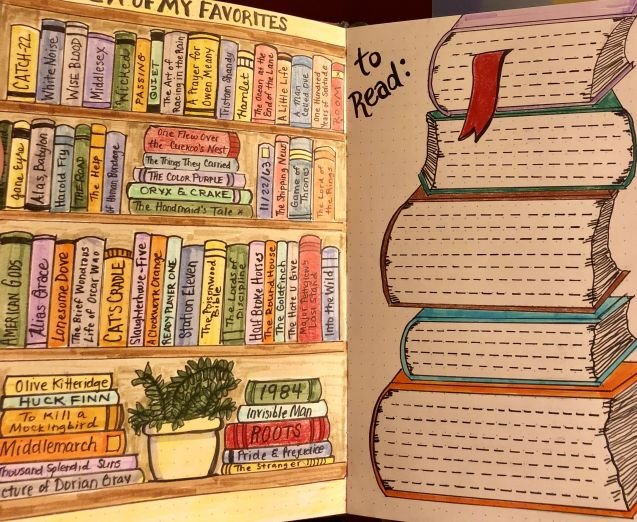 OF MY FAVORITES
CATCH-22
White Noise
WISE BLOOD
Middlesex
WICKED
PASSING
QUIET
The Art of
Racing in the Rain
A Prayer for
Owen Meany
Tristam Shandy
Hamlet
The Ocean at the
End of the Lane
A Little Life
A Man
Called Ove
One Hundred
Years of Solitude
ROOM
Jane Eyre
Alas, Babylon
Harold Fry
THE ROAD
The Help
Of Human Bondage
One Flew Over
the Cuckoo's Nest
The Things They Carried
THE COLOR PURPLE
ORYX & CRAKE
The Handmaid's Tale
11/22/63
The Shipping News
Game of
Thrones
The Lord of
the Rings
AMERICAN GODS
Alias Grace
Lonesome Dove
The Brief Wondrous
Life of Oscar Wao
CAT'S CRADLE
Slaughterhouse-Five
A Clockwork Orange
READY PLAYER ONE
Station Eleven
The Poisonwood
Bible
The Lords of
Discipline
Half Broke Horses
The Round House
The Goldfinch
The Hate U Give
Major Pettigrew's
Last Stand
Into the Wild
Olive Kitteridge
HUCK FINN
To Kill a
Mockingbird
Middlemarch
Thousand Splendid Suns
cture of Dorian Gray
1984
Invisible Man
ROOTS
Pride & Prejudice
The Stranger
to
Read: